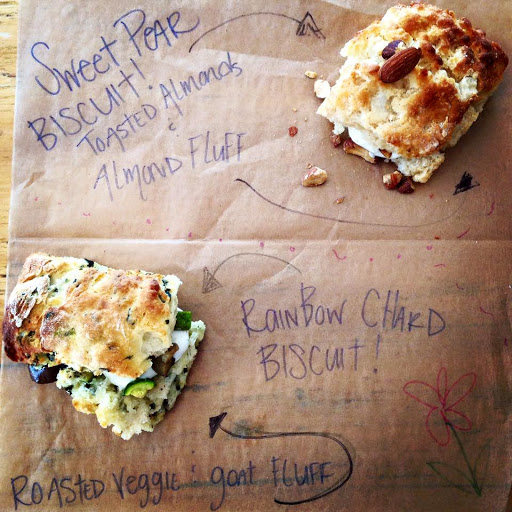 SWEET PEAR
BISCUIT!
TOASTED Almonds
&
Almond Fluff
RAINBOW CHARD
BISCUIT!
ROASTED Veggie & goat FLUFF